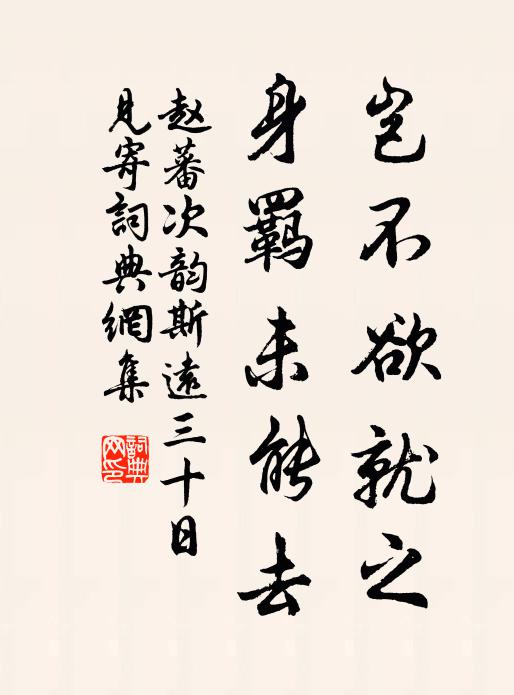 岂不欲就之
身羁未能去
赵蕃次韵斯远三十日
见寄詞典網集
詞典网印